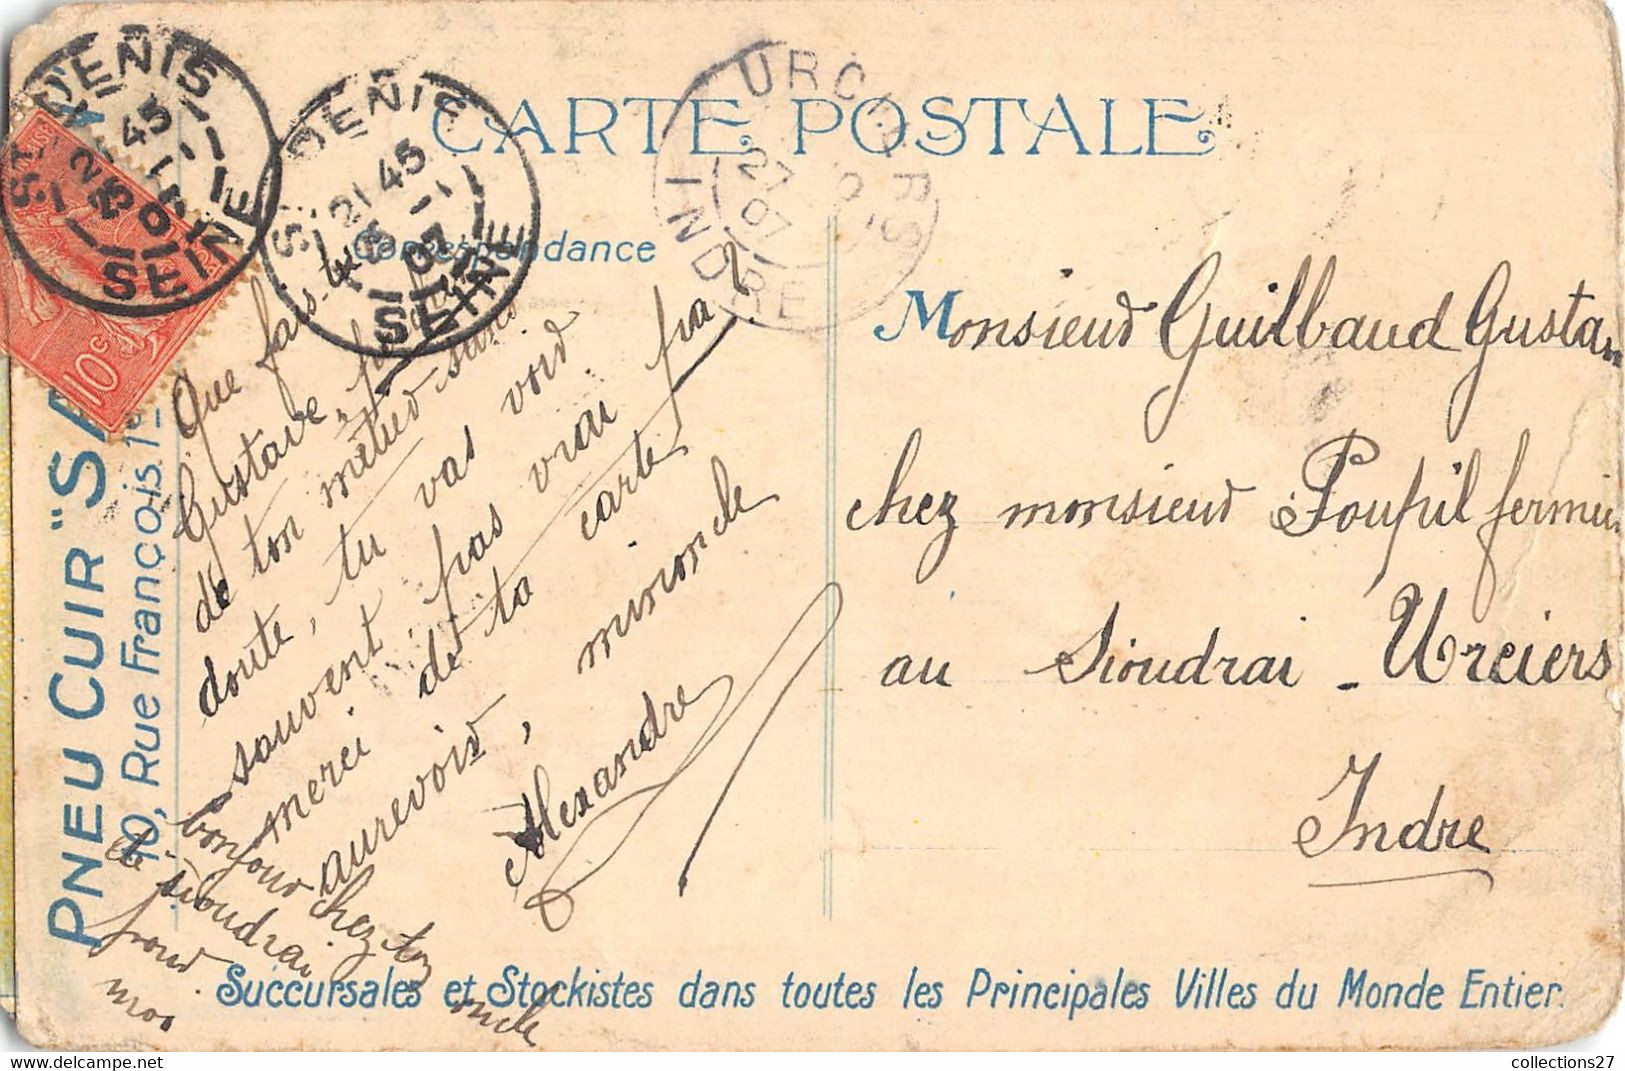 CARTE POSTALE
Correspondance
ST DENIS
21 45
SEINE
ST DENIS
21 45
07
SEINE
URCIERS
27
07
INDRE
10c
PNEU CUIR "SA
10, Rue François 1er
Que fais-tu
Gustave,
de ton métier sans
doute, tu vas voir
souvent pas vrai pa?
merci de ta carte
aurevoir, mimoncle
Alexandre
bonjour chez ton oncle
de sioudrai
pour
moi
Monsieur Guilbaud Gusta
chez monsieur Poupil fermier
au Sioudrai - Urciers
Indre
Succursales et Stockistes dans toutes les Principales Villes du Monde Entier.
collections27